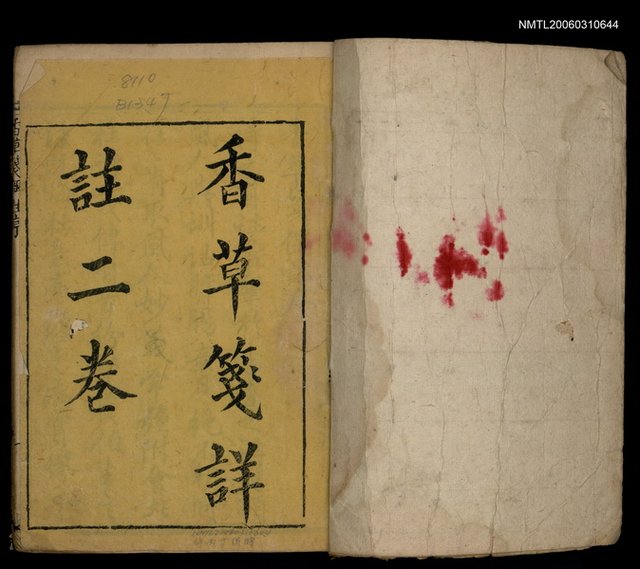 NMTL20060310644
8110
香草箋詳
註二卷